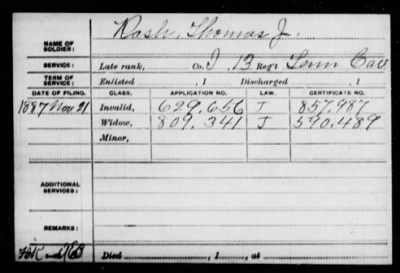 Rash, Thomas J.
NAME OF SOLDIER:
SERVICE: Late rank, Co. I, 13 Reg't Tenn Cav
TERM OF SERVICE: Enlisted , 1 Discharged , 1
DATE OF FILING. CLASS. APPLICATION NO. LAW. CERTIFICATE NO.
1887 Nov 21 Invalid, 629.656 I 857.987
Widow, 809.341 J 590.489
Minor,
ADDITIONAL SERVICES:
REMARKS:
Died , 1 , at